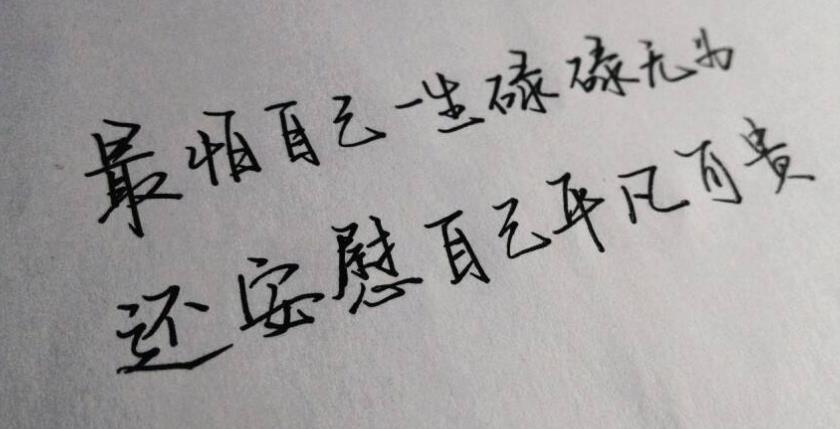 最怕自己一生碌碌无为
还安慰自己平凡可贵